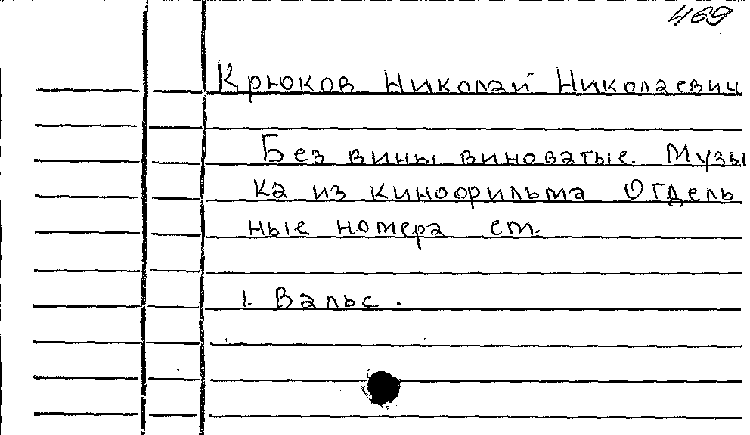 469
Крюков Николай Николаевич
Без вины виноватые. Музы
ка из кинофильма Отдель
ные номера см.
1. Вальс.